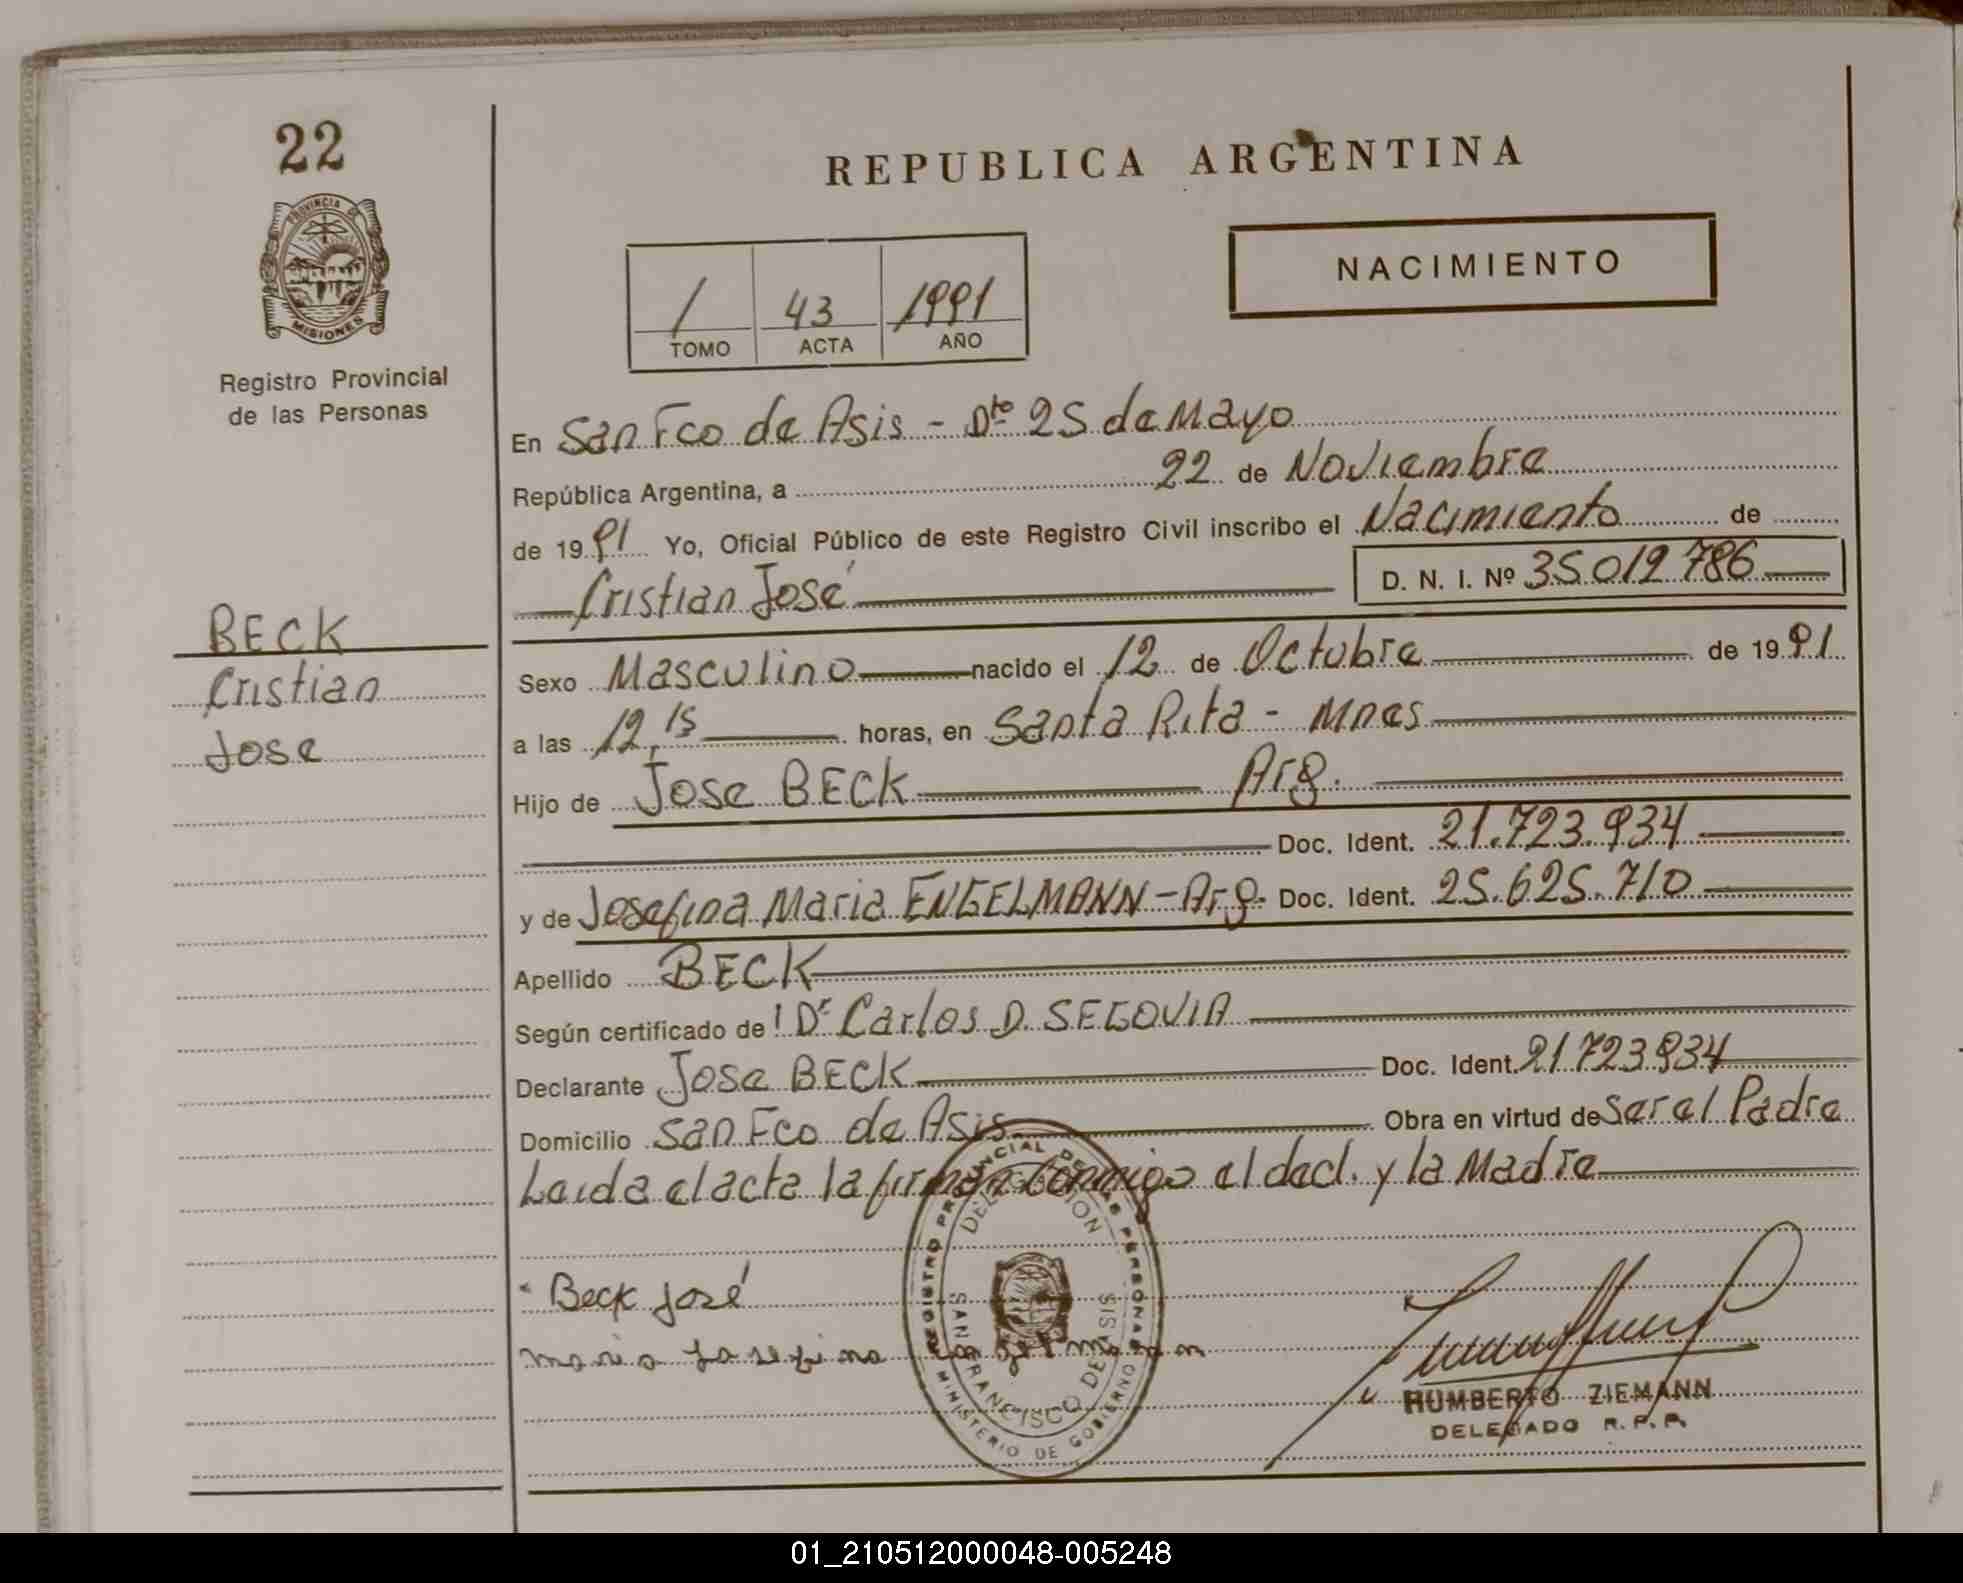 22
PROVINCIA DE
MISIONES
Registro Provincial
de las Personas
BECK
Cristian
Jose
REPUBLICA ARGENTINA
NACIMIENTO
1 43 1991
TOMO ACTA AÑO
En San Fco de Asis - Dto 25 de Mayo
República Argentina, a 22 de Noviembre
de 1991 Yo, Oficial Público de este Registro Civil inscribo el Nacimiento de
Cristian José D. N. I. Nº 35.019.786
Sexo Masculino nacido el 12 de Octubre de 1991
a las 12,15 horas, en Santa Rita - Mnes
Hijo de Jose BECK Arg.
Doc. Ident. 21.723.934
y de Josefina Maria ENGELMANN - Arg. Doc. Ident. 25.625.710
Apellido BECK
Según certificado de Dr Carlos D. SEGOVIA
Declarante Jose BECK Doc. Ident. 21.723.934
Domicilio San Fco de Asis Obra en virtud de Ser el Padre
Leida el acta la firman conmigo el decl. y la Madre
Beck José
maria josefina engelmann
REGISTRO PROVINCIAL DE LAS PERSONAS
DELEGACION
SAN FRANCISCO DE ASIS
MINISTERIO DE GOBIERNO
HUMBERTO ZIEMANN
DELEGADO R. P. P.
01_210512000048-005248